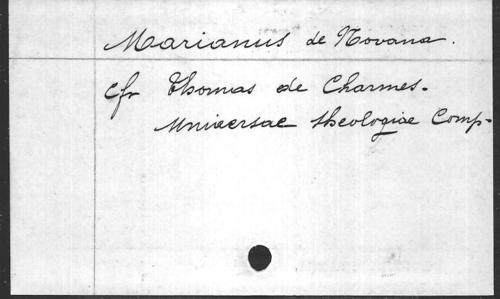 Marianus de Novana.
cfr Thomas de Charmes.
Universae theologiae Comp.